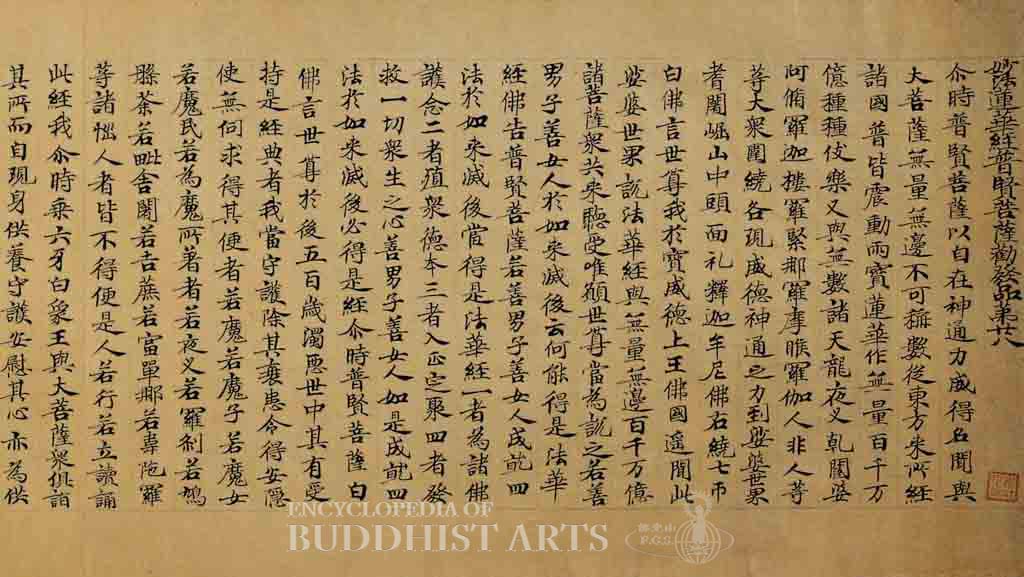 妙法蓮華經普賢菩薩勸發品第廿八
尒時普賢菩薩以自在神通力威得名聞與
大菩薩無量無邊不可稱數從東方来所經
諸國普皆震動雨寶蓮華作無量百千万
億種種伎樂又與無數諸天龍夜叉乹闥婆
阿脩羅迦樓羅緊那羅摩睺羅伽人非人等
等大衆圍繞各現威德神通之力到娑婆世界
耆闍崛山中頭面礼釋迦牟尼佛右繞七帀
白佛言世尊我於寶威德上王佛國遥聞此
娑婆世界說法華經與無量無邊百千万億
諸菩薩衆共来聽受唯願世尊當為說之若善
男子善女人於如来滅後云何能得是法華
經佛告普賢菩薩若善男子善女人成就四
法於如来滅後當得是法華經一者為諸佛
護念二者殖衆德本三者入正定聚四者發
救一切衆生之心善男子善女人如是成就四
法於如来滅後必得是經尒時普賢菩薩白
佛言世尊於後五百歲濁惡世中其有受
持是經典者我當守護除其衰患令得安隱
使無伺求得其便者若魔若魔子若魔女
若魔民若為魔所著者若夜叉若羅刹若鳩
槃荼若毗舍闍若吉蔗若富單那若韋陁羅
等諸惱人者皆不得便是人若行若立讀誦
此經我尒時乗六牙白象王與大菩薩衆俱詣
其所而自現身供養守護安慰其心亦為供
ENCYCLOPEDIA OF
BUDDHIST ARTS
佛光山
F.G.S.